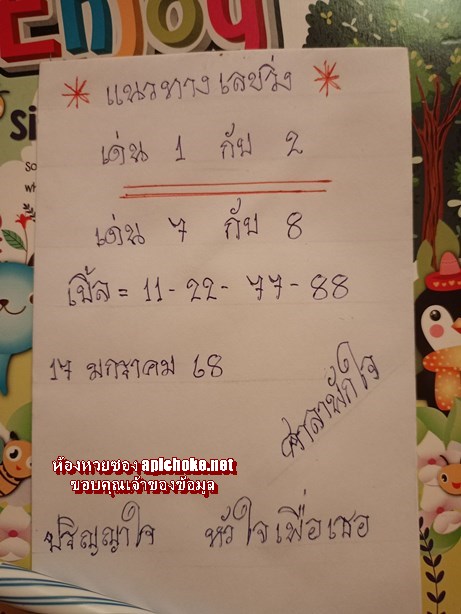 Enjoy
* แนวทางเลขวิ่ง *
เด่น 1 กับ 2
เด่น 7 กับ 8
เบิ้ล = 11 - 22 - 77 - 88
17 มกราคม 68
ศาลาพักใจ
ห้องหวยซอง aplchoke.net
ขอบคุณเจ้าของข้อมูล
ปริญญาใจ หัวใจเพื่อเธอ